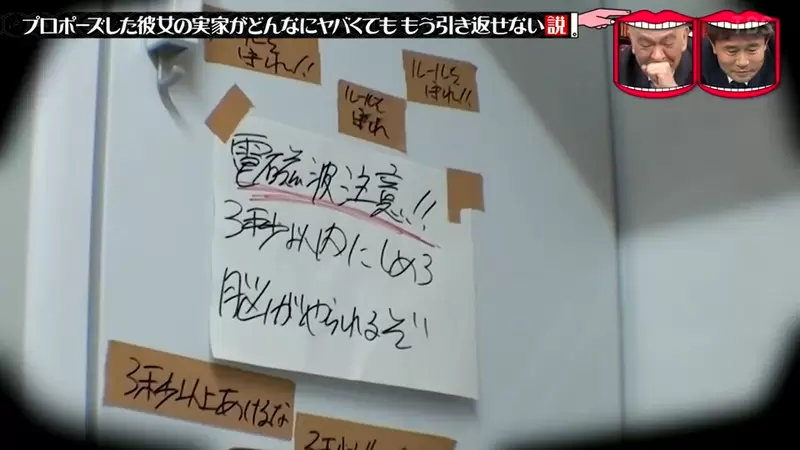 プロポーズした彼女の実家がどんなにヤバくても もう引き返せない説
ルールを
まもれ!!
ルールを
まもれ
ルールを
まもれ!!
電磁波注意!!
3秒以内にしめろ
脳がやられるぞ
3秒以上あけるな